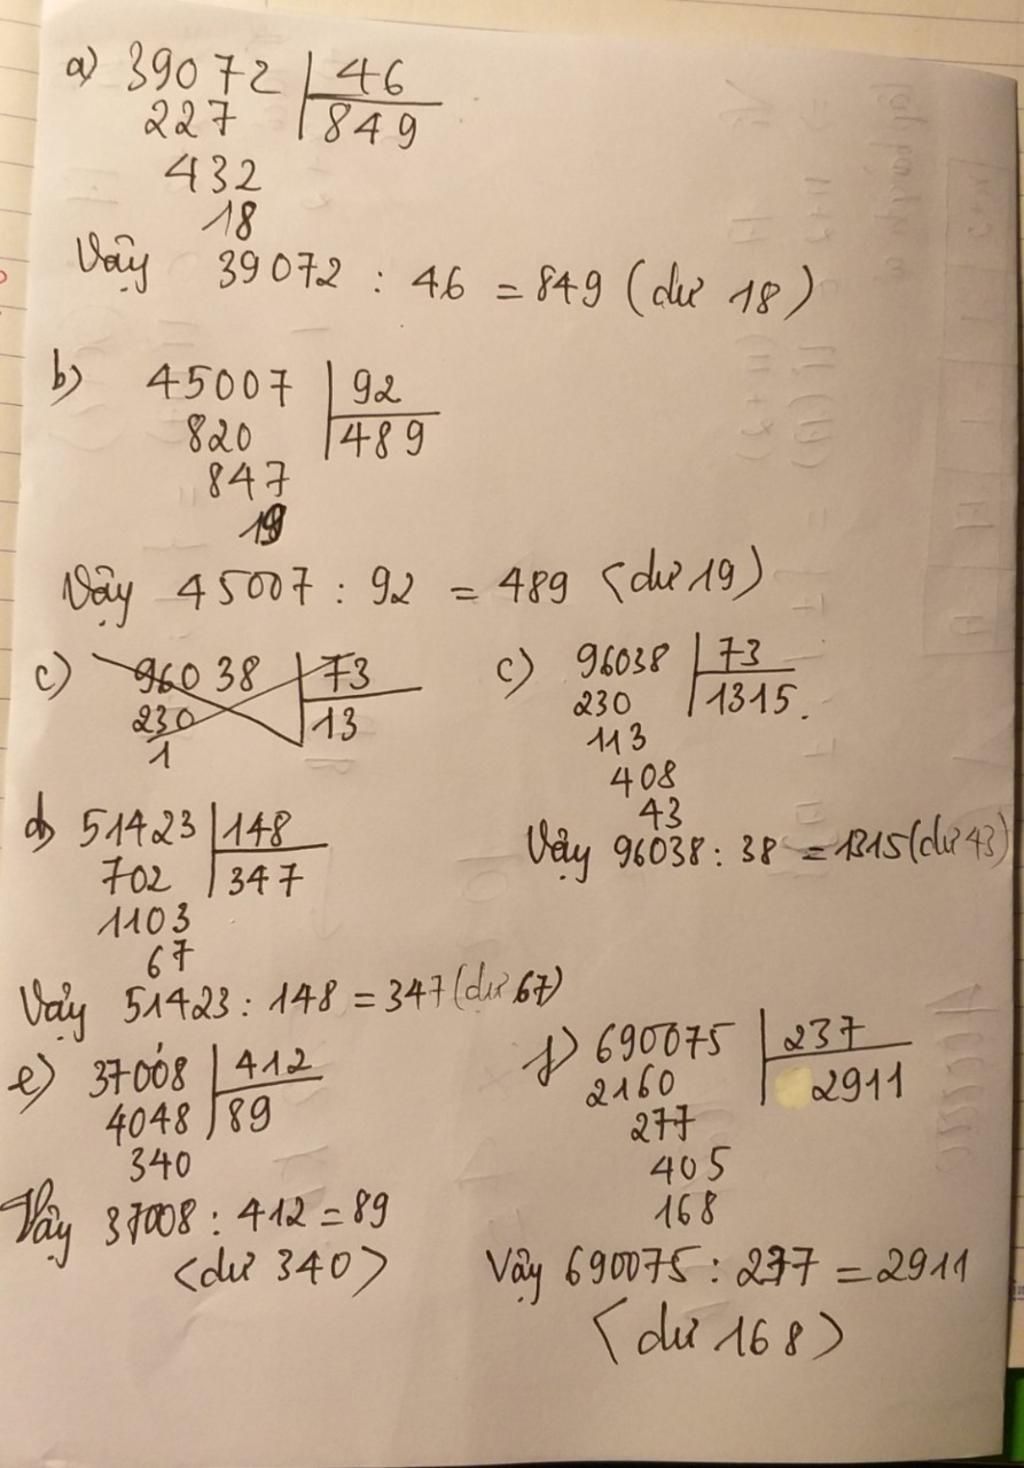 a) 39072 46
227 849
432
18
Vậy 39072 : 46 = 849 (dư 18)
b) 45007 92
820 489
847
19
Vậy 45007 : 92 = 489 (dư 19)
c) 96038 73
230 13
1
c) 96038 73
230 1315.
113
408
43
Vậy 96038 : 38 = 1315 (dư 43)
d) 51423 148
702 347
1103
67
Vậy 51423 : 148 = 347 (dư 67)
e) 37008 412
4048 89
340
Vậy 37008 : 412 = 89
(dư 340)
f) 690075 237
2160 2911
277
405
168
Vậy 690075 : 237 = 2911
(dư 168)